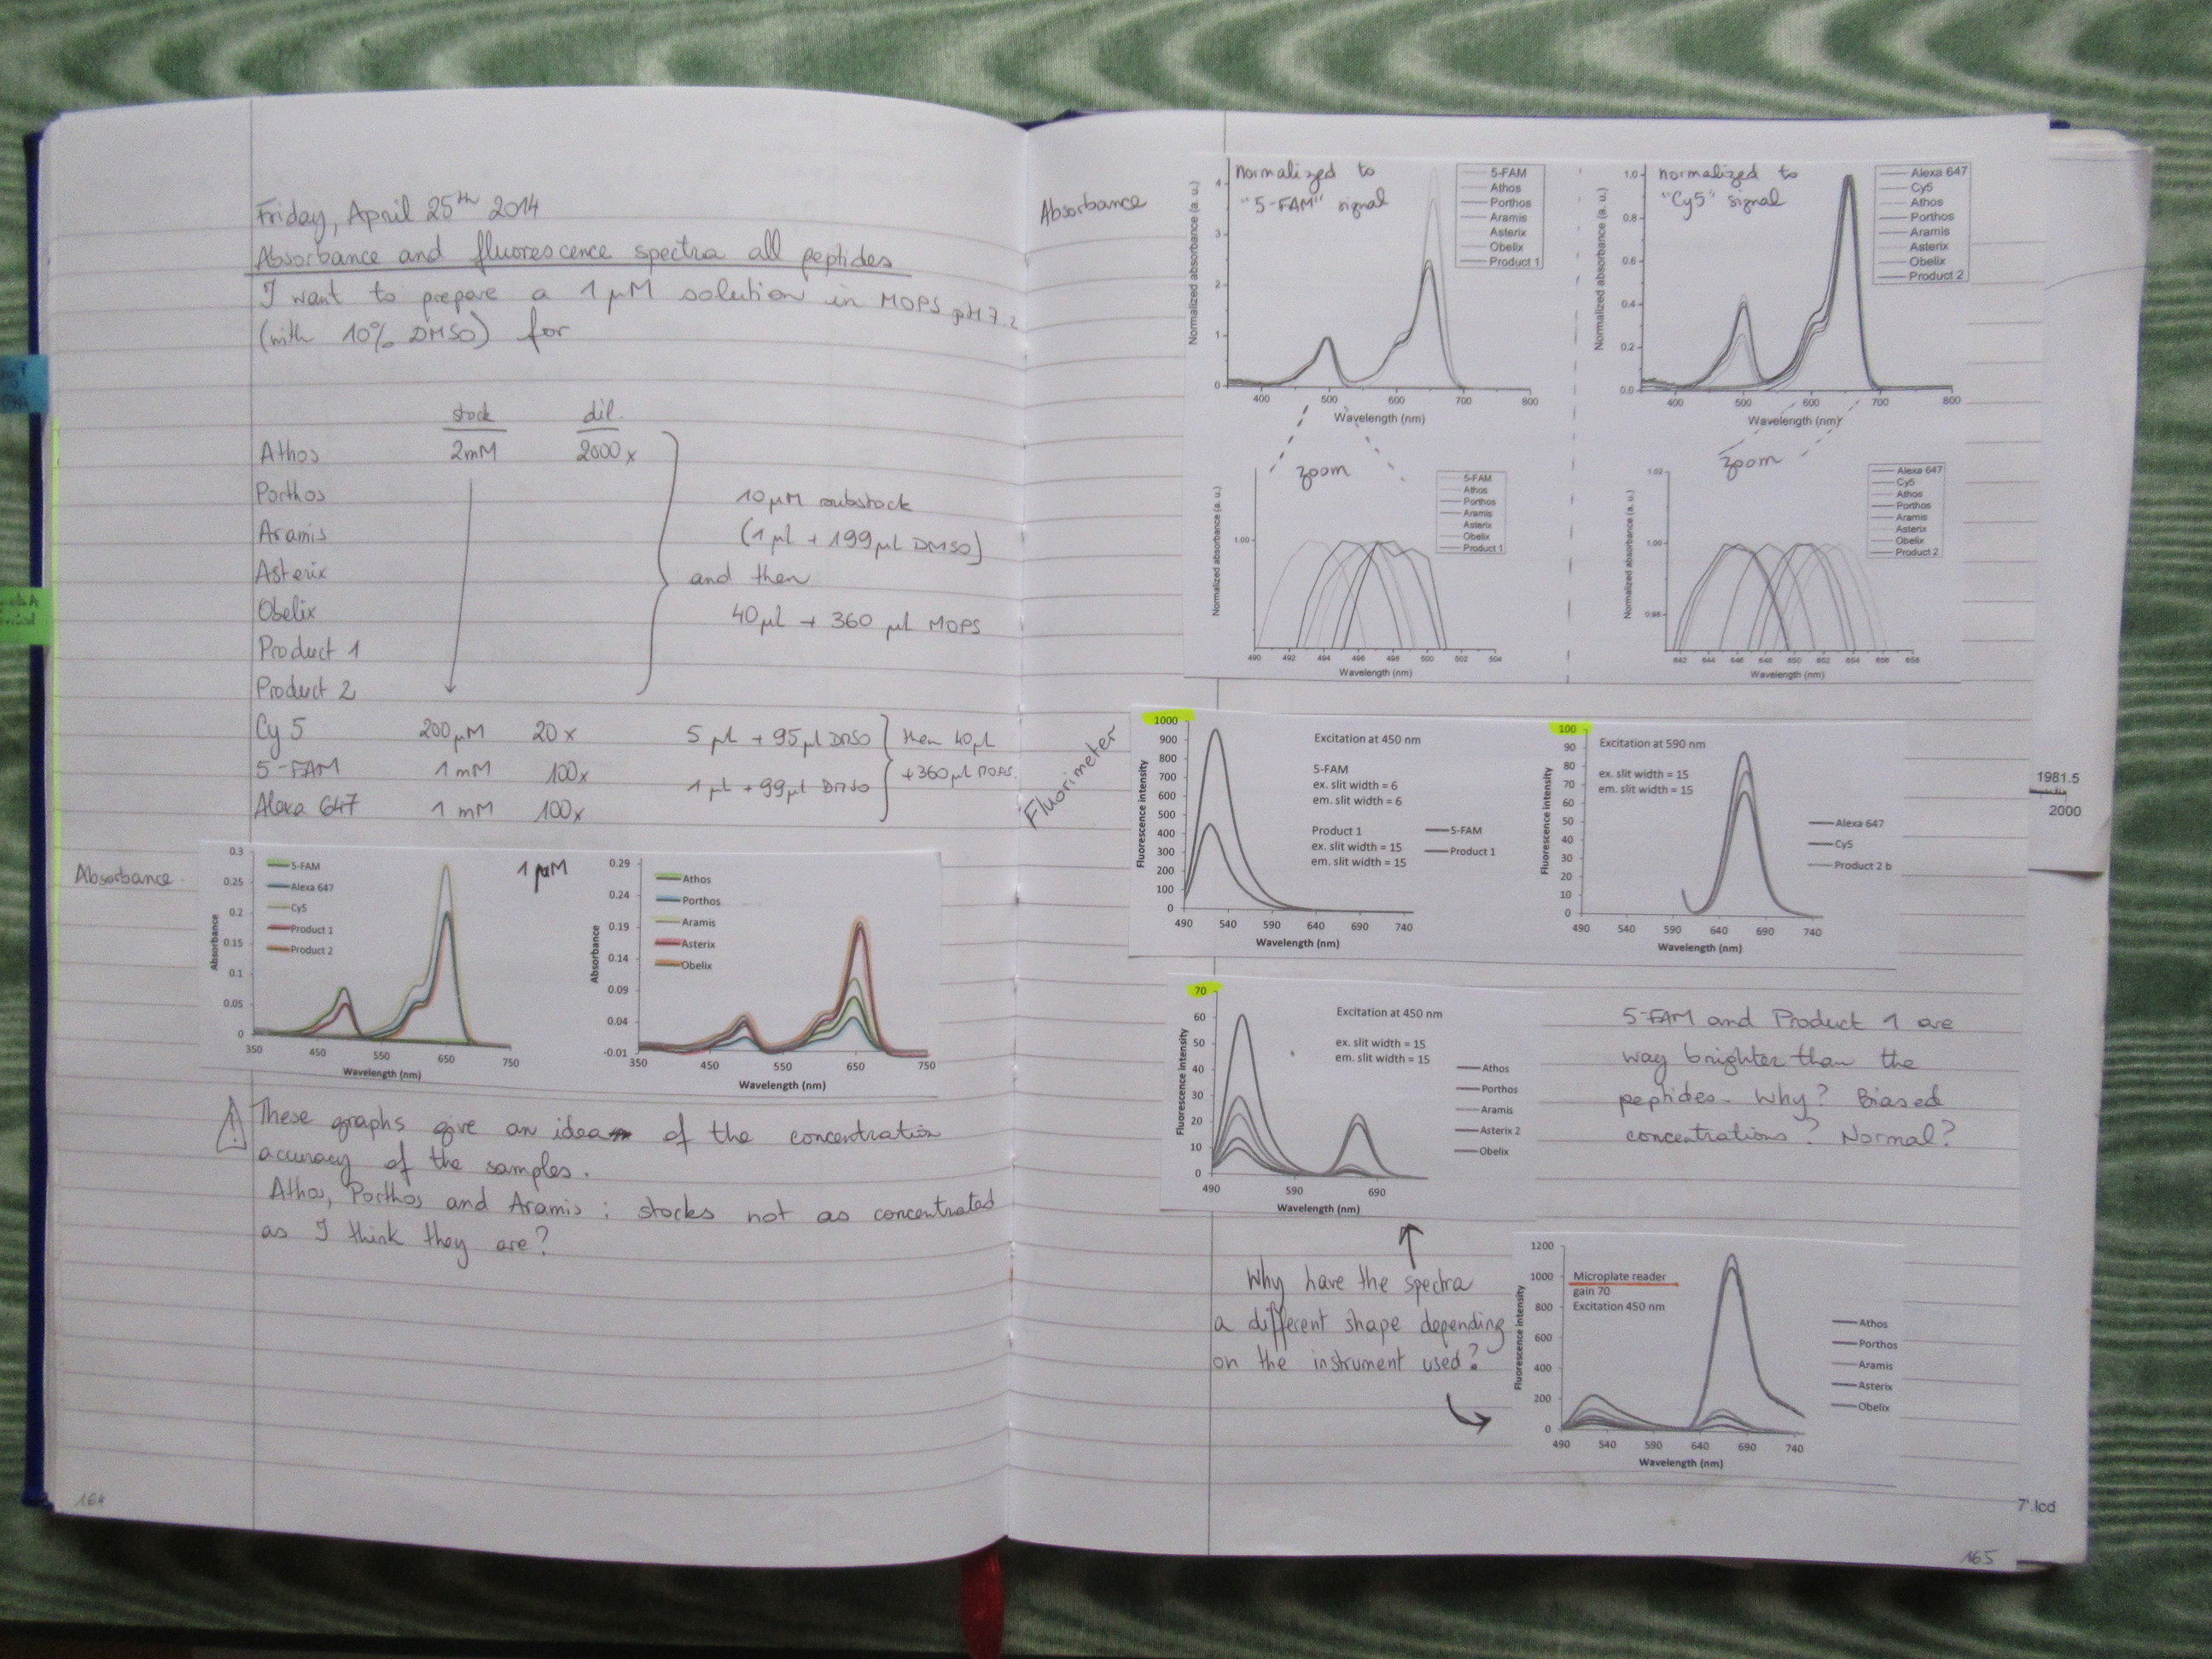 Friday, April 25th 2014
Absorbance and fluorescence spectra all peptides
I want to prepare a 1 µM solution in MOPS pH 7.2
(with 10% DMSO) for
stock dil.
Athos 2mM 2000x
Porthos
Aramis
Asterix
Obelix
Product 1
Product 2
10µM substock
(1 µl + 199 µl DMSO)
and then
40µl + 360 µl MOPS
Cy 5 200µM 20x 5 µl + 95µl DMSO
5-FAM 1 mM 100x
Alexa 647 1 mM 100x
1 µl + 99µl DMSO
then 40µl
+360µl MOPS.
Absorbance
0.3
0.25
0.2
0.15
0.1
0.05
0
Absorbance
5-FAM
Alexa 647
Cy5
Product 1
Product 2
350 450 550 650 750
Wavelength (nm)
1 µM
0.29
0.24
0.19
0.14
0.09
0.04
-0.01
Absorbance
Athos
Porthos
Aramis
Asterix
Obelix
350 450 550 650 750
Wavelength (nm)
These graphs give an idea of the concentration
accuracy of the samples.
Athos, Porthos and Aramis : stocks not as concentrated
as I think they are?
164
Absorbance
normalized to
"5-FAM" signal
5-FAM
Athos
Porthos
Aramis
Asterix
Obelix
Product 1
4
3
2
1
0
Normalized absorbance (a. u.)
400 500 600 700 800
Wavelength (nm)
normalized to
"Cy5" signal
Alexa 647
Cy5
Athos
Porthos
Aramis
Asterix
Obelix
Product 2
1.0
0.8
0.6
0.4
0.2
0.0
Normalized absorbance (a. u.)
400 500 600 700 800
Wavelength (nm)
zoom
5-FAM
Athos
Porthos
Aramis
Asterix
Obelix
Product 1
1.00
Normalized absorbance (a. u.)
490 492 494 496 498 500 502 504
Wavelength (nm)
zoom
Alexa 647
Cy5
Athos
Porthos
Aramis
Asterix
Obelix
Product 2
1.02
1.00
0.98
Normalized absorbance (a. u.)
642 644 646 648 650 652 654 656 658
Wavelength (nm)
Fluorimeter
1000
900
800
700
600
500
400
300
200
100
0
Fluorescence intensity
Excitation at 450 nm
5-FAM
ex. slit width = 6
em. slit width = 6
Product 1
ex. slit width = 15
em. slit width = 15
5-FAM
Product 1
490 540 590 640 690 740
Wavelength (nm)
100
90
80
70
60
50
40
30
20
10
0
Fluorescence intensity
Excitation at 590 nm
ex. slit width = 15
em. slit width = 15
Alexa 647
Cy5
Product 2 b
490 540 590 640 690 740
Wavelength (nm)
70
60
50
40
30
20
10
0
Fluorescence intensity
Excitation at 450 nm
ex. slit width = 15
em. slit width = 15
Athos
Porthos
Aramis
Asterix 2
Obelix
490 590 690
Wavelength (nm)
5-FAM and Product 1 are
way brighter than the
peptides. Why? Biased
concentrations? Normal?
Why have the spectra
a different shape depending
on the instrument used?
1200
1000
800
600
400
200
0
Fluorescence intensity
Microplate reader
gain 70
Excitation 450 nm
Athos
Porthos
Aramis
Asterix
Obelix
490 540 590 640 690 740
Wavelength (nm)
1981.5
2000
7'.lcd
165